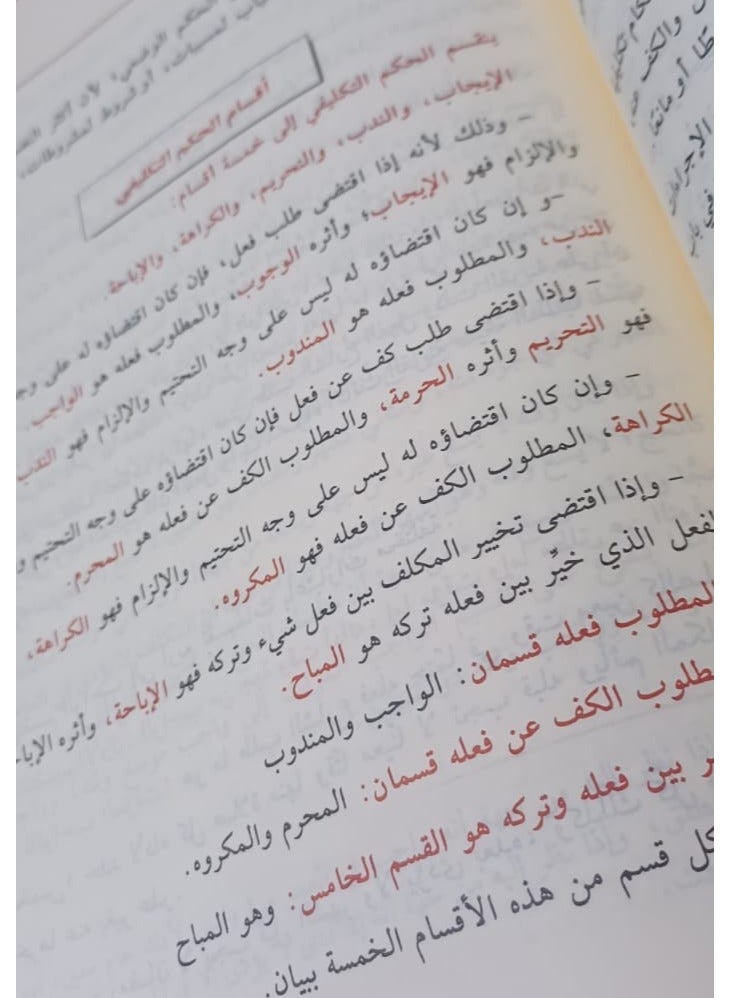 الحكم الوضعي، لأن
أقسام الحكم التكليفي
ينقسم الحكم التكليفي إلى خمسة أقسام:
الإيجاب، والندب، والتحريم، والكراهة، والإباحة.
- وذلك لأنه إذا اقتضى طلب فعل، فإن كان اقتضاؤه له على
والإلزام فهو الإيجاب؛ وأثره الوجوب، والمطلوب فعله هو الواجب.
-و إن كان اقتضاؤه له ليس على وجه التحتيم والإلزام فهو الندب
الندب، والمطلوب فعله هو المندوب.
- وإذا اقتضى طلب كف عن فعل فإن كان اقتضاؤه على وجه التحتيم
فهو التحريم وأثره الحرمة، والمطلوب الكف عن فعله هو المحرم.
- وإن كان اقتضاؤه له ليس على وجه التحتيم والإلزام فهو الكراهة،
الكراهة، المطلوب الكف عن فعله فهو المكروه.
- وإذا اقتضى تخيير المكلف بين فعل شيء وتركه فهو الإباحة، وأثره
لفعل الذي خيِّر بين فعله تركه هو المباح.
المطلوب فعله قسمان: الواجب والمندوب
طلوب الكف عن فعله قسمان: المحرم والمكروه.
ر بين فعله وتركه هو القسم الخامس: وهو المباح
كل قسم من هذه الأقسام الخمسة بيان.